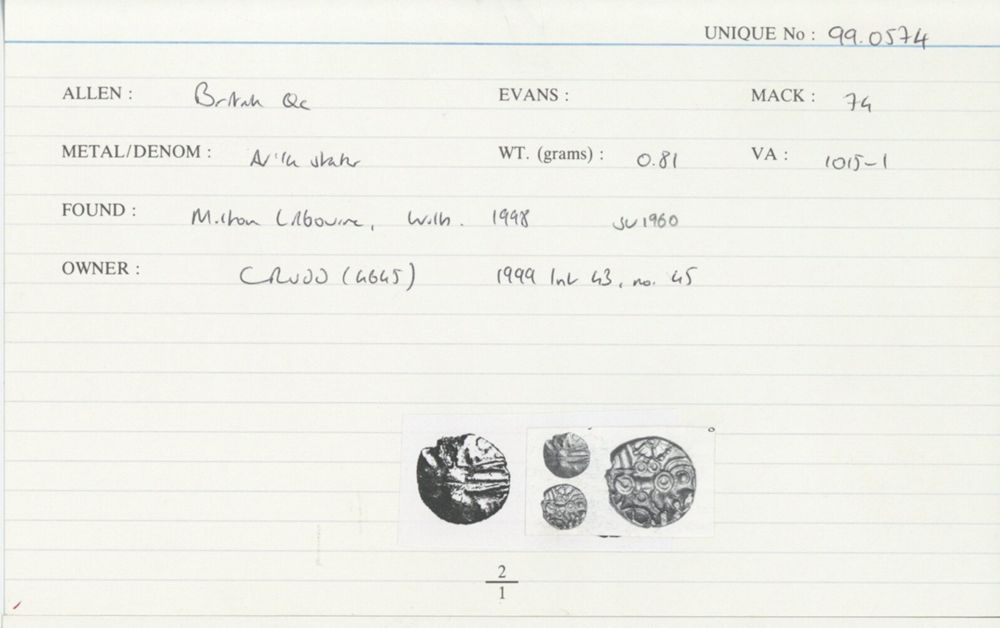 UNIQUE No : 99.0574
ALLEN : British Qc EVANS : MACK : 74
METAL/DENOM : AV 1/4 stater WT. (grams) : 0.81 VA : 1015-1
FOUND : Milton Lilbourne, Wilts. 1998 SU 1960
OWNER : CRUDD (4645) 1999 Int 43, no. 45
2
1